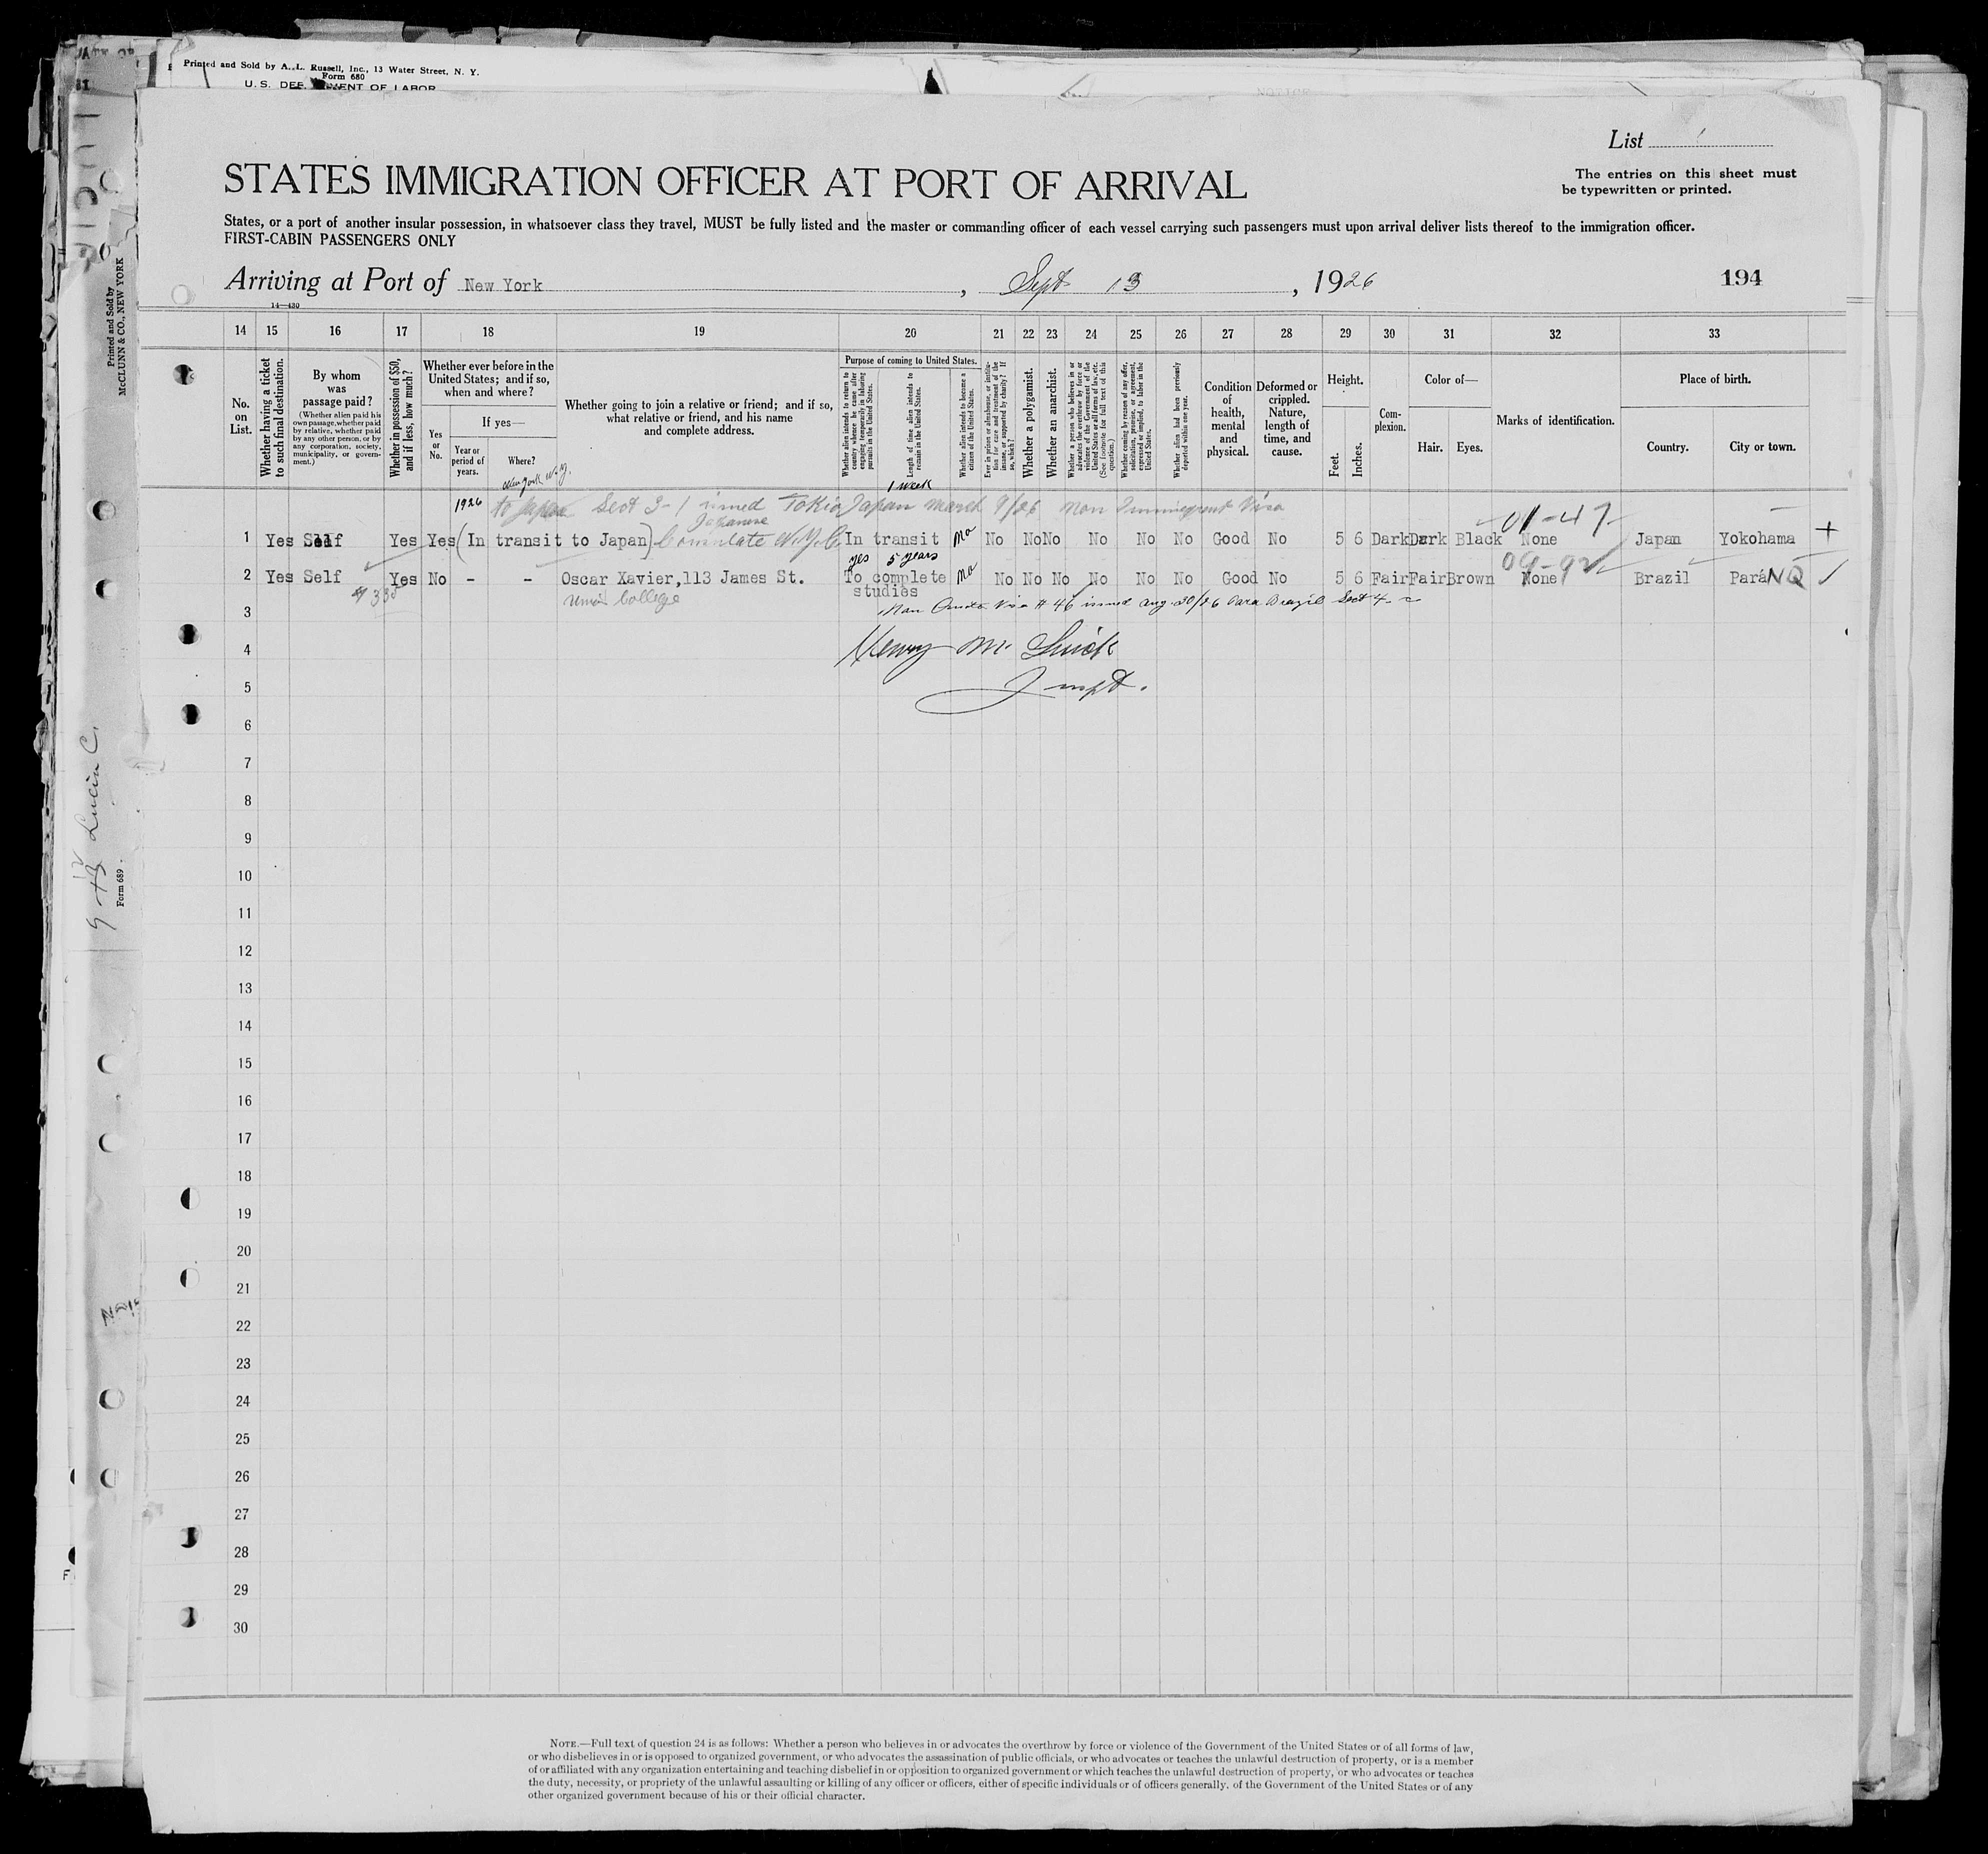 Printed and Sold by A. L. Russell, Inc., 13 Water Street, N. Y.
Form 680
U. S. DEPARTMENT OF LABOR
NOTICE
List
The entries on this sheet must
be typewritten or printed.
STATES IMMIGRATION OFFICER AT PORT OF ARRIVAL
States, or a port of another insular possession, in whatsoever class they travel, MUST be fully listed and the master or commanding officer of each vessel carrying such passengers must upon arrival deliver lists thereof to the immigration officer.
FIRST-CABIN PASSENGERS ONLY
Arriving at Port of New York, Sept 13, 1926
194
14—430
14 15 16 17 18 19 20 21 22 23 24 25 26 27 28 29 30 31 32 33
No. on List.
Whether having a ticket to such final destination.
By whom was passage paid?
(Whether alien paid his own passage, whether paid by relative, whether paid by any other person, or by any corporation, society, municipality, or government.)
Whether in possession of $50, and if less, how much?
Whether ever before in the United States; and if so, when and where?
Yes or No.
If yes—
Year or period of years.
Where?
Whether going to join a relative or friend; and if so, what relative or friend, and his name and complete address.
Purpose of coming to United States.
Whether alien intends to return to country whence he came after engaging temporarily in laboring pursuits in the United States.
Length of time alien intends to remain in the United States.
Whether alien intends to become a citizen of the United States.
Ever in prison or almshouse, or institution for care and treatment of the insane, or supported by charity? If so, which?
Whether a polygamist.
Whether an anarchist.
Whether a person who believes in or advocates the overthrow by force or violence of the Government of the United States or all forms of law, etc. (See footnote for full text of this question.)
Whether coming by reason of any offer, solicitation, promise, or agreement, expressed or implied, to labor in the United States.
Whether alien had been previously deported within one year.
Condition of health, mental and physical.
Deformed or crippled. Nature, length of time, and cause.
Height.
Feet.
Inches.
Complexion.
Color of—
Hair.
Eyes.
Marks of identification.
Place of birth.
Country.
City or town.
New York N.Y. 1 week
1926 to Japan Sect 3-1 issued Tokio Japan March 9/26 Non Immigrant Visa 01-47
Japanese
1 Yes Self Yes Yes (In transit to Japan) Consulate N.Y.C. In transit No No No No No No No Good No 5 6 Dark Dark Black None Japan Yokohama +
yes 5 years 09-92
2 Yes Self Yes No - - Oscar Xavier, 113 James St. To complete No No No No No No No Good No 5 6 Fair Fair Brown None Brazil Pará NQ
College studies
3 Non Quota Visa # 46 issued Aug 30/26 Para Brazil Sect 4
4 Henry
5
6
7
8
9
10
11
12
13
14
15
16
17
18
19
20
21
22
23
24
25
26
27
28
29
30
Printed and Sold by
McCLUNN & CO., NEW YORK
Lucia C.
Form 689.
NOTE.—Full text of question 24 is as follows: Whether a person who believes in or advocates the overthrow by force or violence of the Government of the United States or of all forms of law,
or who disbelieves in or is opposed to organized government, or who advocates the assassination of public officials, or who advocates or teaches the unlawful destruction of property, or is a member
of or affiliated with any organization entertaining and teaching disbelief in or opposition to organized government or which teaches the unlawful destruction of property, or who advocates or teaches
the duty, necessity, or propriety of the unlawful assaulting or killing of any officer or officers, either of specific individuals or of officers generally, of the Government of the United States or of any
other organized government because of his or their official character.